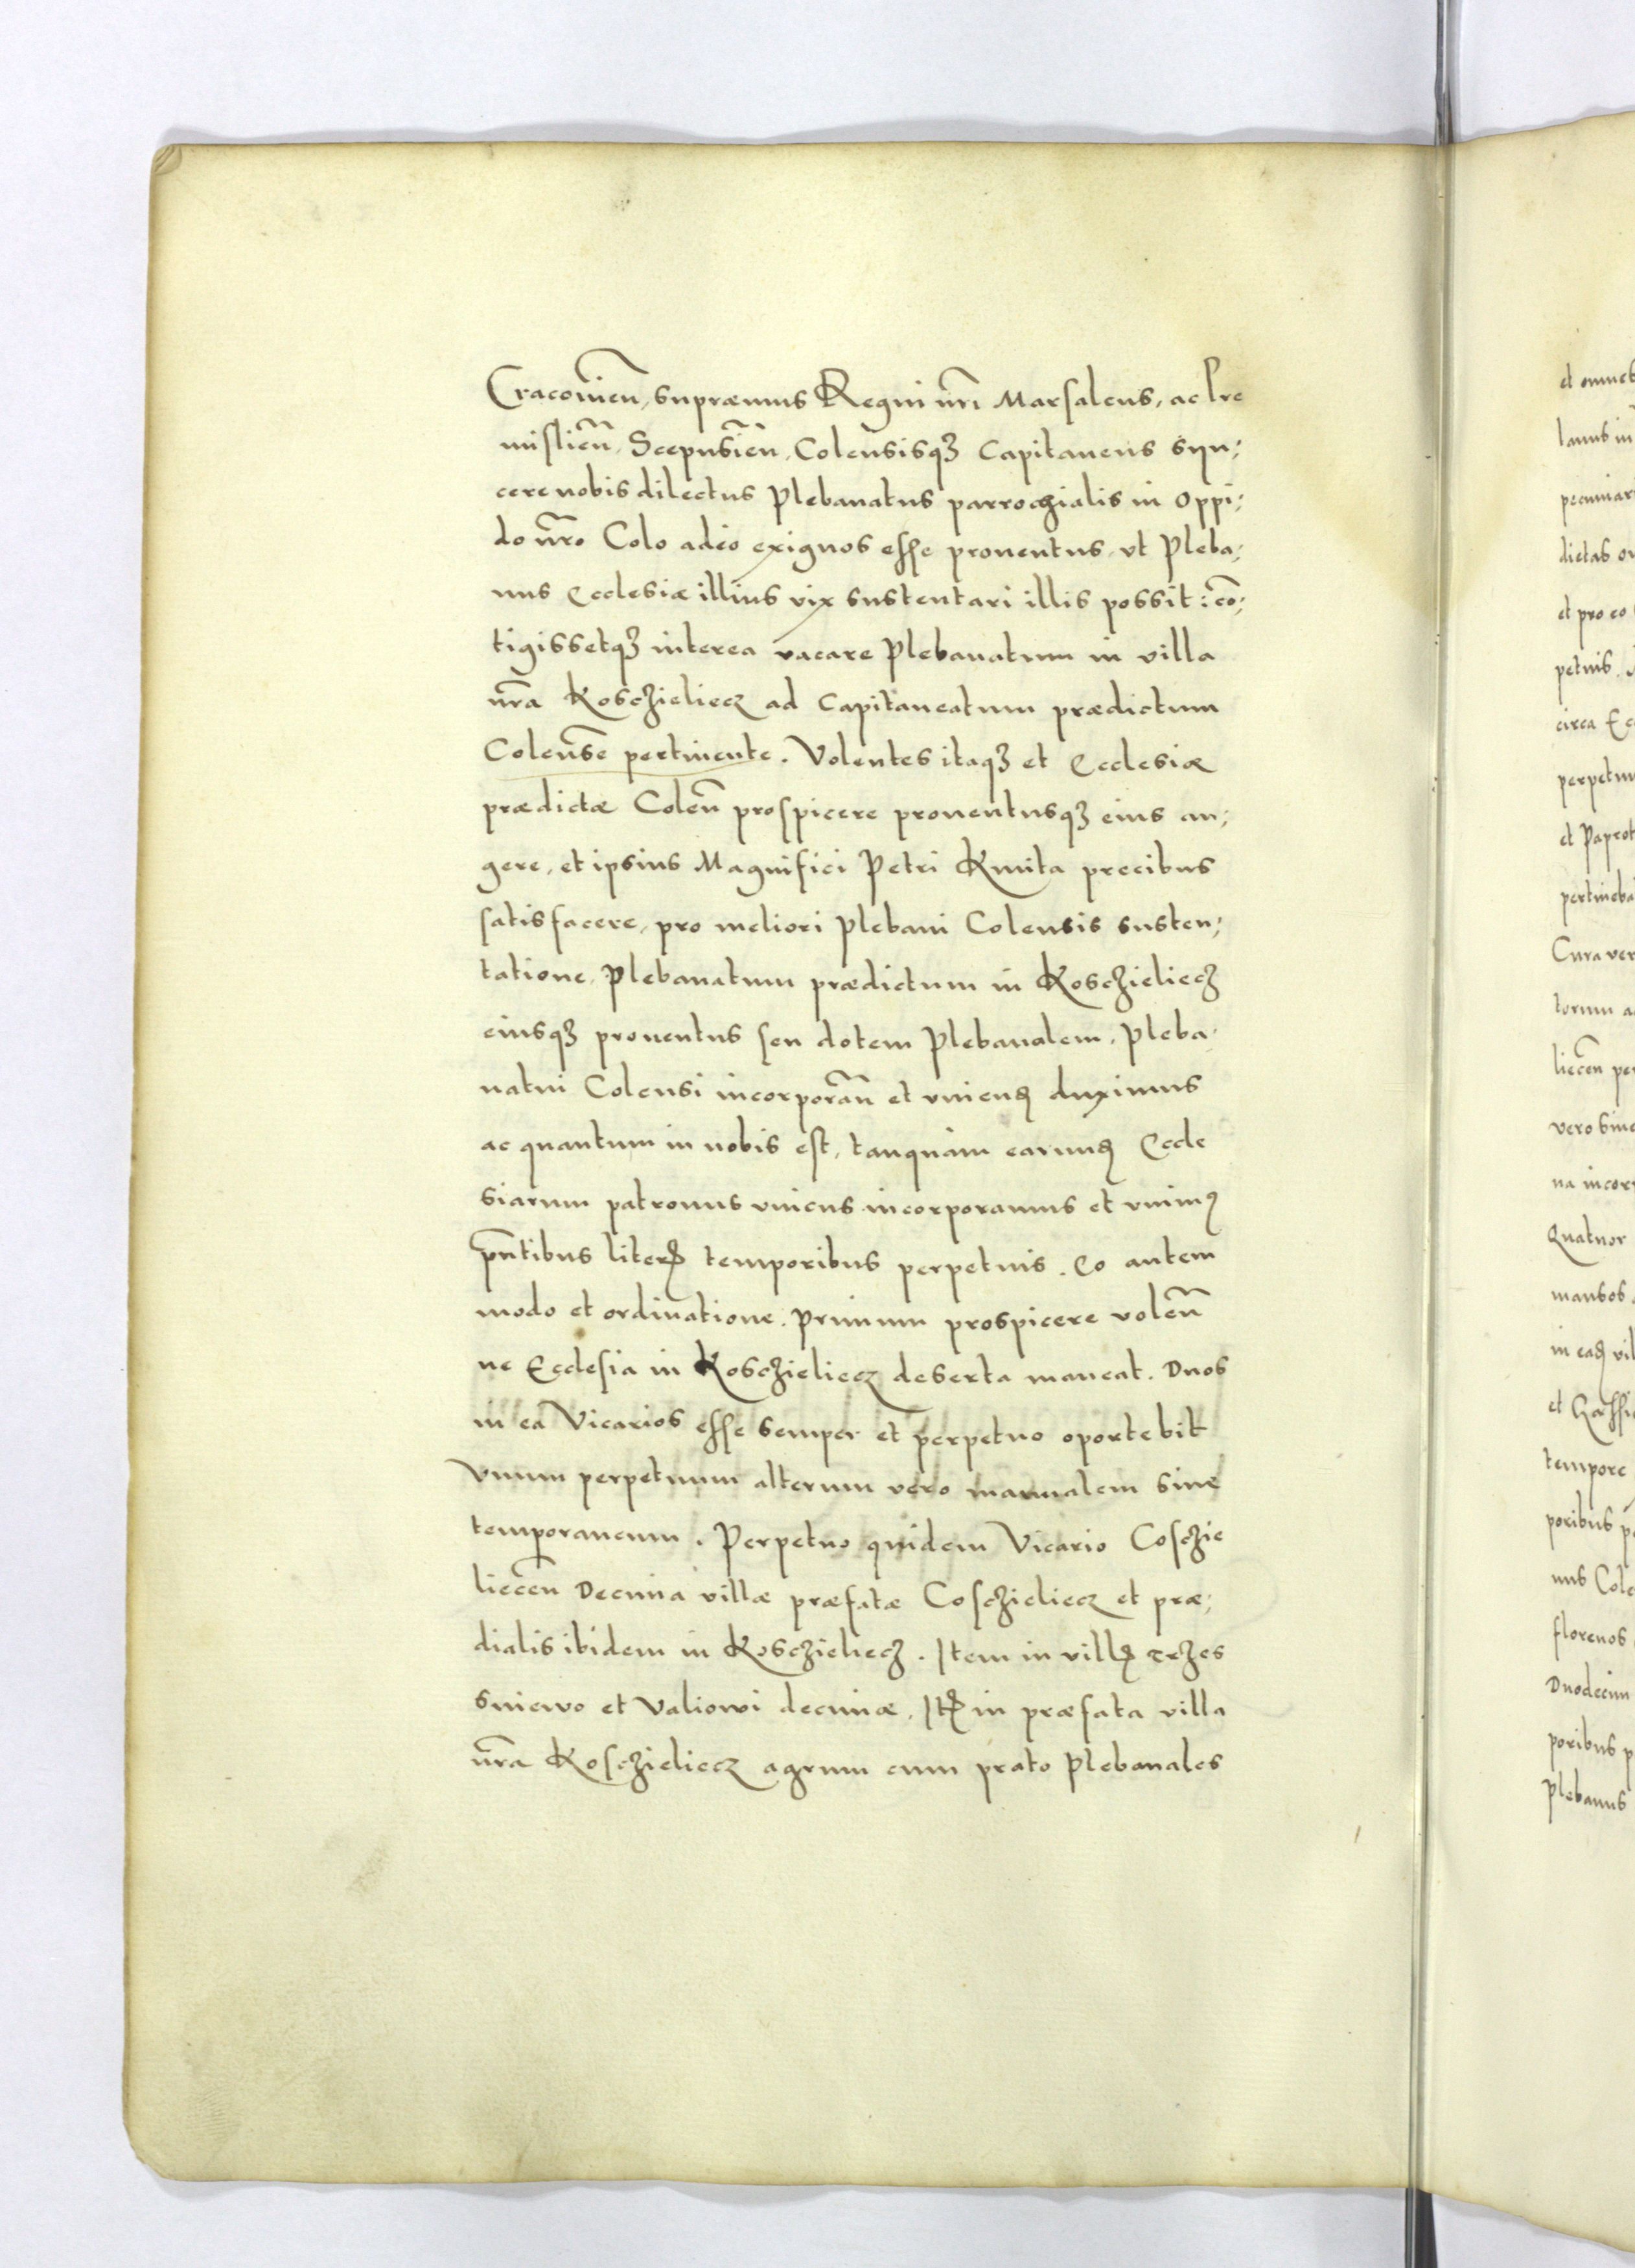 Cracovien̄, supræmus Regni nr̄i Marsalcus, ac Pre
mislien̄, Scepusien̄, Colensisqȝ Capitaneus syn;
cere nobis dilectus Plebanatus parrochialis in Oppi;
do nr̄o Colo adeo exiguos esse prouentus, vt Pleba;
nus Ecclesiæ illius vix sustentari illis possit: cō;
tigissetqȝ interea vacare Plebanatum in villa
nr̄a Koschzieliecz ad Capitaneatum prædictum
Colens̄e pertinente. Volentes itaqȝ et Ecclesiæ
prædictæ Colen̄ prospicere prouentusqȝ eius au;
gere, et ipsius Magnifici Petri Kmita precibus
satisfacere, pro meliori Plebani Colensis susten;
tatione, Plebanatum prædictum in Koschzieliecz
eiusqȝ prouentus seu dotem Plebanalem, Pleba;
natui Colensi incorporan̄ et vniend duximus
ac quantum in nobis est, tanquam earund Eccle
siarum patronus vnicus incorporamus et vnimꝰ
pn̄tibus literꝭ temporibus perpetuis. Eo autem
modo et ordinatione. Primum prospicere volen̄
ne Ecclesia in Koschzieliecz deserta maneat. Duos
in ea Vicarios esse semper et perpetuo oportebit
Vnum perpetuum alterum vero manualem siue
temporaneum. Perpetuo quidem Vicario Coschzie
liecen̄ Decima villæ præfatæ Coschzieliecz et præ;
dialis ibidem in Koschzieliecz. Item in villꝭ Trzes
sniewo et Valiowi decimæ. Itꝭ in præfata villa
nr̄a Koschzieliecz agrum cum prato Plebanales
et omnes
petuis.
perpetuu
Cura ver
torum a
liecen̄ per
vero sine
na incorp
Quatuor
mansos
in ead vil
tempore
poribus p
nus Cole
florenos
Duodecim
poribus p
Plebanus